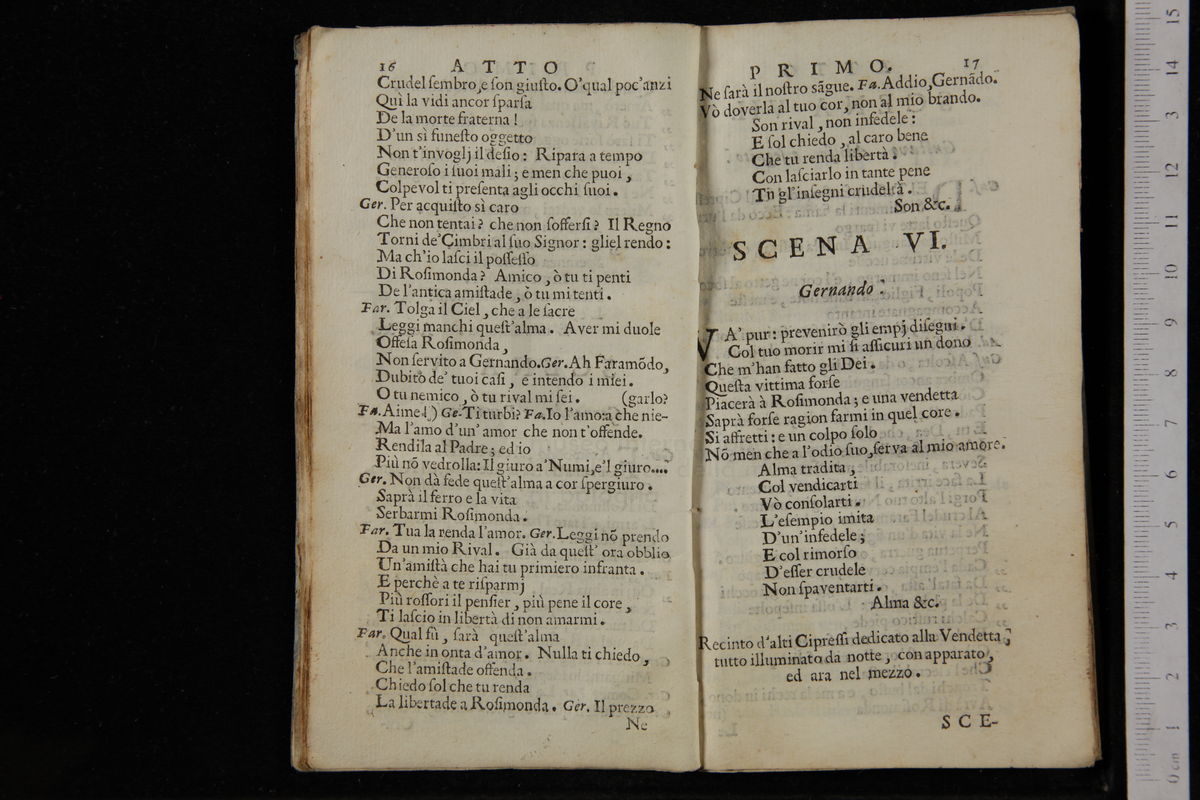 16 ATTO
Crudel ſembro, e ſon giuſto. O'qual poc'anzi
Quì la vidi ancor ſparſa
De la morte fraterna !
D'un sì funeſto oggetto
Non t'invoglj il deſio : Ripara a tempo
Generoſo i ſuoi mali ; e men che puoi ,
Colpevol ti preſenta agli occhi ſuoi .
Ger. Per acquiſto sì caro
Che non tentai ? che non ſofferſi ? Il Regno
Torni de' Cimbri al ſuo Signor : gliel rendo :
Ma ch'io laſci il poſſeſſo
Di Roſimonda ? Amico , ò tu ti penti
De l'antica amiſtade , ò tu mi tenti .
Far. Tolga il Ciel , che a le ſacre
Leggi manchi queſt'alma . Aver mi duole
Offeſa Roſimonda ,
Non ſervito a Gernando. Ger. Ah Faramõdo,
Dubitò de' tuoi caſi , e intendo i miei .
O tu nemico , ò tu rival mi ſei . (garlo?
Fa. Aime ! ) Ge- Ti turbi? Fa. Io l'amo: a che nie-
Ma l'amo d'un' amor che non t'offende.
Rendila al Padre ; ed io
Più nõ vedrolla: Il giuro a' Numi, e'l giuro....
Ger. Non dà fede queſt'alma a cor ſpergiuro .
Saprà il ferro e la vita
Serbarmi Roſimonda .
Far. Tua la renda l'amor. Ger. Leggi nõ prendo
Da un mio Rival . Già da queſt' ora obblio
Un'amiſtà che hai tu primiero infranta .
E perchè a te riſparmj
Più roſſori il penſier , più pene il core ,
Ti laſcio in libertà di non amarmi .
Far. Qual fù , ſarà queſt'alma
Anche in onta d'amor . Nulla ti chiedo ,
Che l'amiſtade offenda .
Chiedo ſol che tu renda
La libertade a Roſimonda . Ger. Il prezzo
Ne
PRIMO. 17
Ne ſarà il noſtro sãgue. Fa. Addio, Gernãdo.
Vò doverla al tuo cor, non al mio brando.
Son rival , non infedele :
E ſol chiedo , al caro bene
Che tu renda libertà .
Con laſciarlo in tante pene
Tu gl'inſegni crudeltà .
Son &c.
SCENA VI.
Gernando .
VA' pur : prevenirò gli empj diſegni .
Col tuo morir mi ſi aſſicuri un dono
Che m'han fatto gli Dei .
Queſta vittima forſe
Piacerà à Roſimonda ; e una vendetta
Saprà forſe ragion farmi in quel core .
Si affretti : e un colpo ſolo
Nõ men che a l'odio ſuo, ſerva al mio amore.
Alma tradita ,
Col vendicarti
Vò conſolarti .
L'eſempio imita
D'un'infedele ;
E col rimorſo
D'eſſer crudele
Non ſpaventarti .
Alma &c.
Recinto d'alti Cipreſſi dedicato alla Vendetta ;
tutto illuminato da notte , con apparato ,
ed ara nel mezzo .
SCE-
0 cm 1 2 3 4 5 6 7 8 9 10 11 12 13 14 15